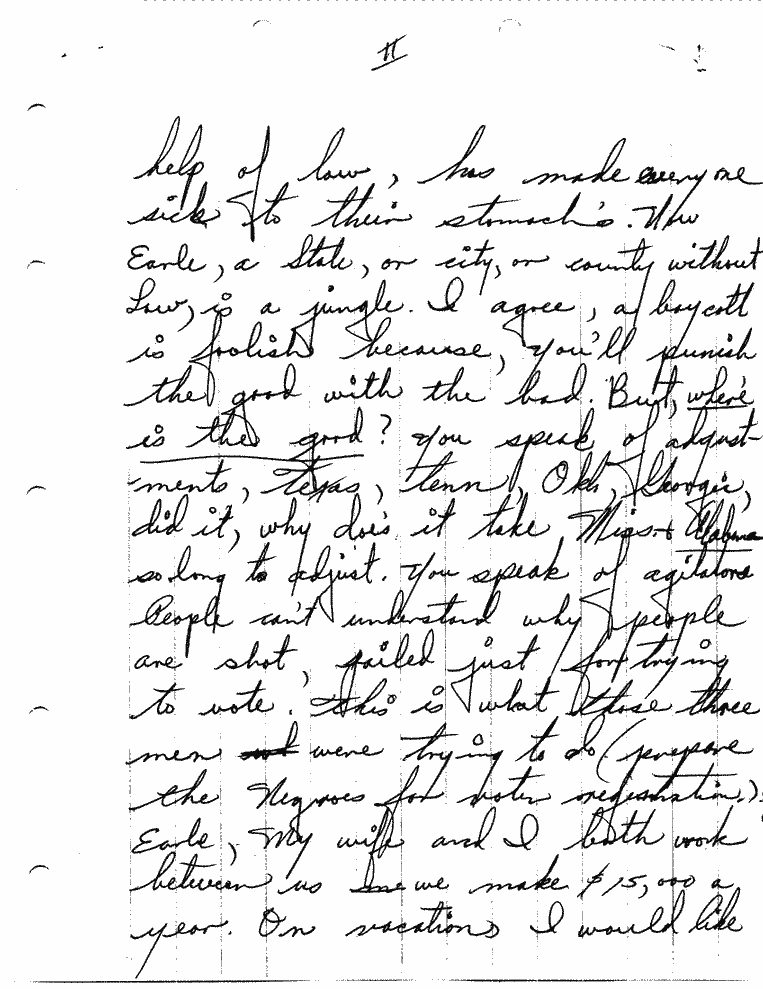 II
help of law, has made everyone
sick to their stomach's. Now
Earle, a State, or city, or county without
Law, is a jungle. I agree, a boycott
is foolish because, you'll punish
the good with the bad. But, where
is the good? You speak of adjust-
ments, Texas, Tenn, Okla, Georgia,
did it, why does it take Miss. + Alabama
so long to adjust. You speak of agitators
People can't understand why people
are shot, jailed just for trying
to vote. This is what those three
men were trying to do (prepare
the Negroes for voter registration.)
Earle, My wife and I both work
between us we make $15,000 a
year. On vacations I would like